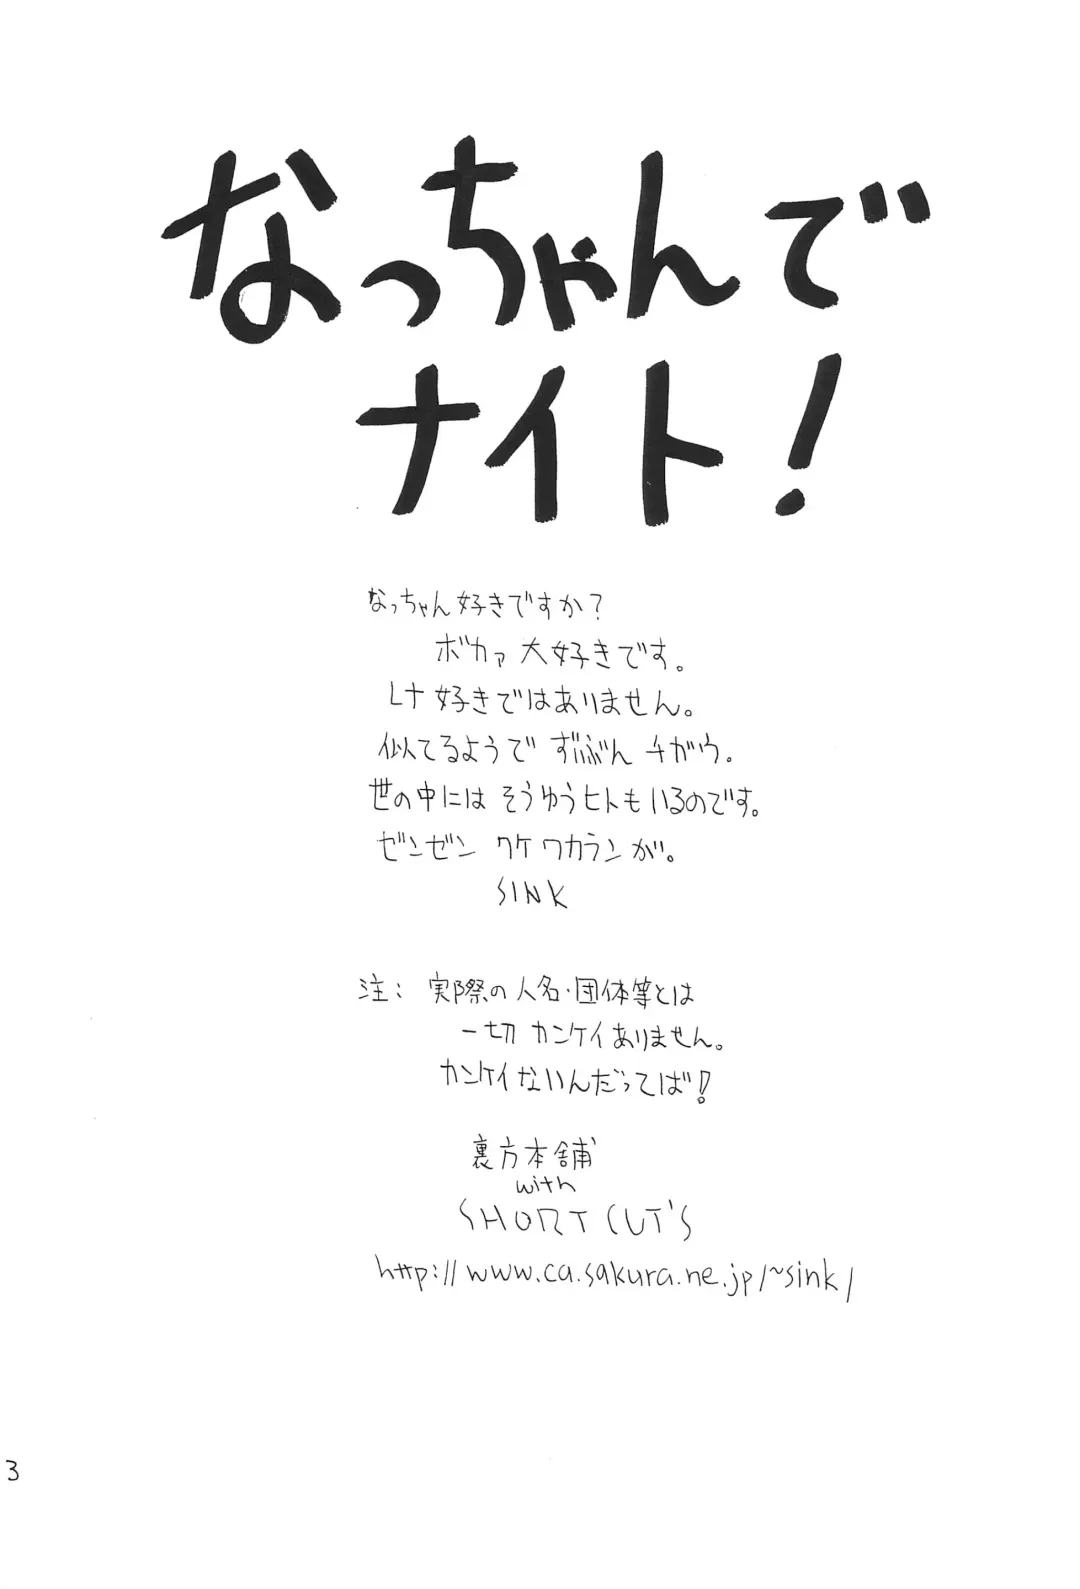 なっちゃんで
ナイト!
なっちゃん好きですか?
ボカァ 大好きです。
レナ好きではありません。
似てるようで ずいぶん チガウ。
世の中には そうゆうヒトもいるのです。
ゼンゼン ワケワカランが。
SINK
注: 実際の人名・団体等とは
一切 カンケイありません。
カンケイないんだってば!
裏方本舗
with
SHORT CUT'S
http://www.ca.sakura.ne.jp/~sink/
3